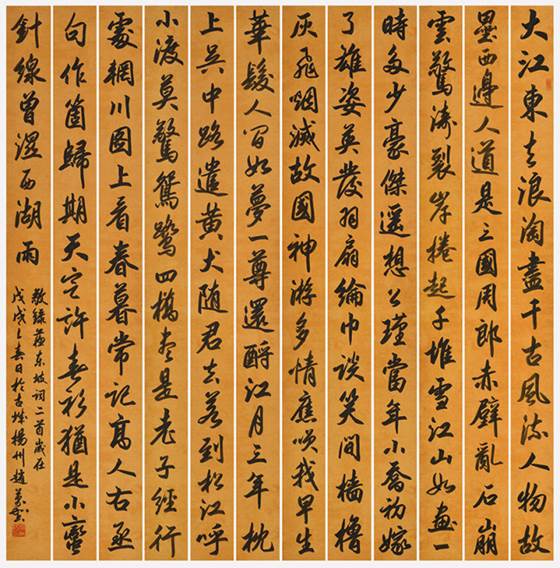 大江東去浪淘盡千古風流人物故
壘西邊人道是三國周郎赤壁亂石崩
雲驚濤裂岸捲起千堆雪江山如畫一
時多少豪傑遥想公瑾當年小喬初嫁
了雄姿英發羽扇綸巾談笑間檣櫓
灰飛烟滅故國神游多情應笑我早生
華髮人間如夢一尊還酹江月三年枕
上吳中路遣黄犬随君去若到松江呼
小渡莫驚鴛鷺四橋盡是老子經行
處輞川圖上看春暮常記高人右丞
句作箇歸期天定許春衫猶是小蠻
針線曾濕西湖雨
敬錄蘇東坡詞二首歲在
戊戌之春日於古城揚州趙